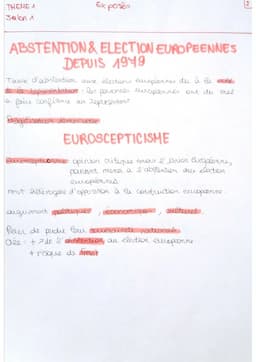 THEME 1
Exposés
2
Jalon 1
ABSTENTION & ELECTION EUROPEENNES
DEPUIS 1979
Taux d'abstention aux élections européennes dû à la
: les européens ont du mal
à faire confiance aux représentants
EUROSCEPTICISME
opinion critique envers l'Union Européenne,
pouvant mener à l'abstention des élections
européennes
mvnt hétérogène d'opposition à la construction européenne.
argument politiques, économiques, culturels
Peur de perdre leur souveraineté nationale
de l'abstention au élection européenne
+ risque de Brexit